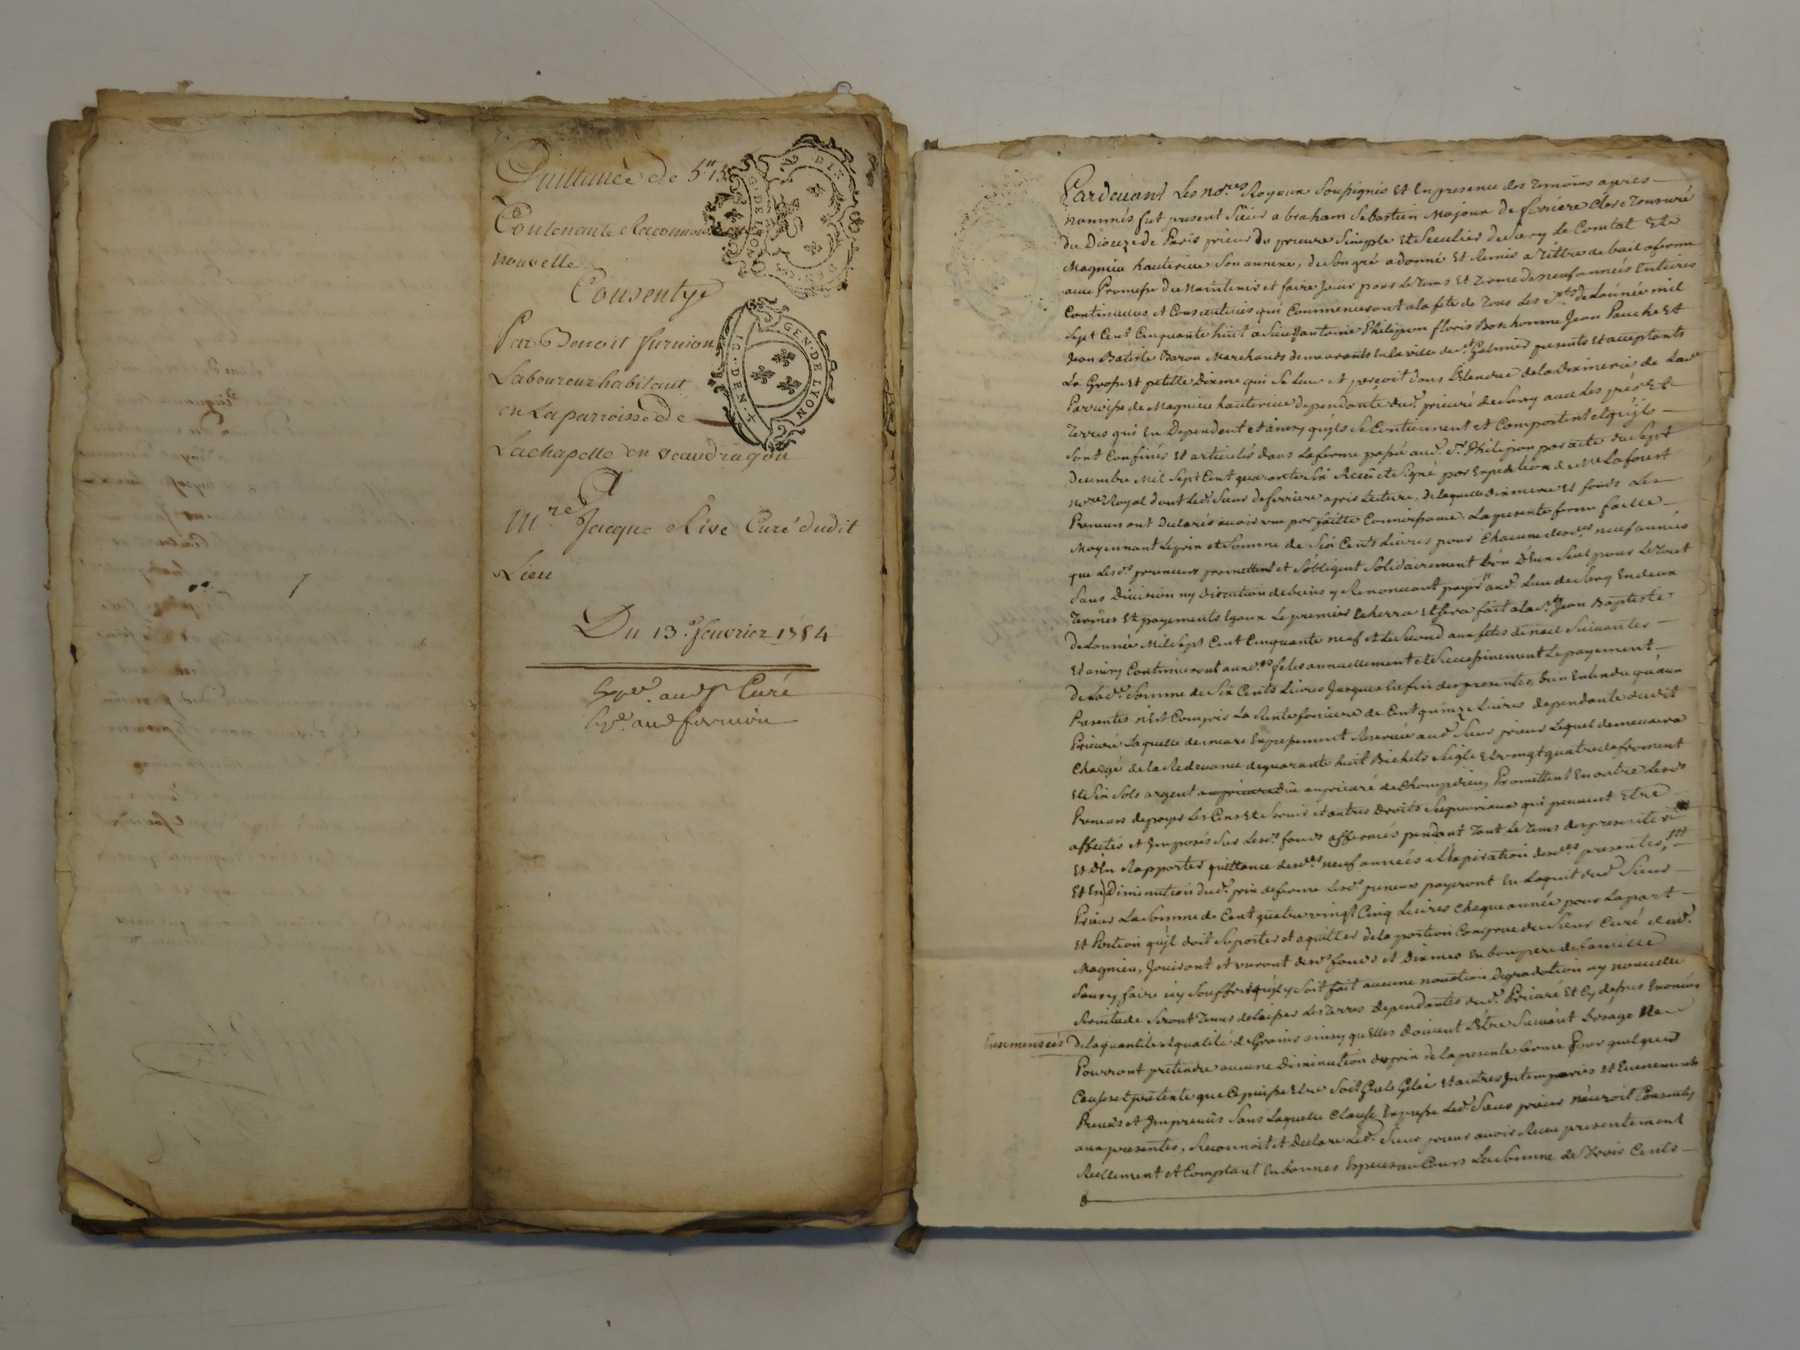 Quittance de 5# 15
Contenante Reconnoiss
nouvelle
Consentye
Par Benoit furnion
Laboureur habitant
en La parroisse de
Lachapelle en veaudragon
A
Mre Jacque Rive Curé dudit
Lieu
Du 13e feuvrier 1754
expé. aud Sr Curé
expé. aud furnion
GEN·DE LYON
Pardeuant Les nores Royaux Soussignés Et En presence des Temoins apres
nommés fut present Sieur abraham Sebastien Majoux de ferriere Clerc Tonsuré
du Dioceze de Paris prieur du prieuré Simple Et Seculier de Sury de Comtal Et de
Magnieu hauterive Son annexe, de Son gré a donné Et Remis a Tiltre de bail a ferme
avec Promesse de Maintenir et faire Jouir pour Le Tems Et Terme de neuf années Entieres
Continuelles et Consecutives qui Commenceront a la fete de Tous Les Sts de L'année mil
Sept Cent Cinquante huit a Sieurs antoine Philipon floris Bonhomme Jean Pauche Et
Jean Batiste Baron Marchands demeurants En la ville de St Galmier presents Et acceptants
La Grosse Et petitte Dixme qui Se Leve et perçoit dans L'Etendue de la Dixmerie de La de
Parroisse de Magnieu hauterive dependante dud. prieuré de Sury avec Les prés Et
Terres qui En Dependent et ainsy qu'ils Se Contiennent et Comportent et qu'ils
Sont Confinés Et articulés dans La ferme passé aud. Sr. Philipon par acte du Sept
Decembre Mil Sept Cent quarante Six Receu et Signé par Expedition de Me Laforest
nore Royal dont Led. Sieur de ferriere apris Lecture, de laquelle dixmerie Et fonds Les
Preneurs ont declarés avoir eue parfaitte Connoissance. La presente ferme faitte
Moyennant Le prix et Somme de Six Cents Livres pour Chacune desd. neuf années
que Lesd. preneurs promettent et S'obligent Solidairement L'un d'Eux Seul pour Le Tout
Sans Division ny discution de biens y Renoncant payer aud. Lieu de Sury En deux
Termes Et payements Egaux Le premier Echerra Et Sera fait a la St Jean Baptiste
De Lannée Mil Sept Cent Cinquante neuf et Le Second aux fetes de noel Suivantes
Et ainsy Continueront auxd. fetes annuellement et Successivement Le payement
De Lad. Somme de Six Cents Livres Jusques En fin des presentes, bien Entendu qu'aux
Presentes n'Est Compris La Rente fonciere de Cent quinze Livres dependante dudit
Prieuré Laquelle demeure Expressement Reservée aud. Sieur prieur Lequel demeurera
Chargé de la Redevance de quarante huit Bichets Seigle Et vingt quatre de froment
Et Six Sols argent due au prieuré de Chompdieu, Promettent En outre Lesds
Preneurs de payer Les Cens Et Servis et autres droits Seigneuriaux qui peuvent Etre
affectés et Imposés Sur Lesd. fonds affermés pendant Tout Le Tems des presentes
Et d'En Rapporter quittance desd. neuf années a L'Expiration desd. presentes,
Et En Diminution dud. prix de ferme Lesd. preneurs payeront En Laquit dud. Sieur
Prieur La Somme de Cent quatre vingt Cinq Livres Chaque année pour La part
Et Portion qu'il doit Suporter et aquitter de la portion Congrue du Sieur Curé dud.
Magnieu, Jouiront et useront desd. fonds et Dixmes En bon pere de famille
Sans y faire ny Souffrir qu'il y Soit fait aucune novation Degradation ny nouvelle
Servitude Seront Tenus de Laisser Les Terres dependantes dud. Prieuré Et Cy dessus Enoncées
Ensemensées
De la quantité et qualité de Grains ainsy qu'Elles doivent L'Etre Suivant L'usage Ne
Pourront pretendre aucune Diminution du prix de la presente ferme pour quelques
Causes et pretexte que Ce puisse Etre Soit Grele Gelée Et autres Intemperies et Evenements
Prevus et Imprevus Sans Laquelle Clause Expresse Led. Sieur prieur n'auroit Consentis
aux presentes, Reconnoit et declare Led. Sieur prieur avoir Receu presentement
Reellement et Comptant En bonnes Especes au Cours La Somme de Trois Cents